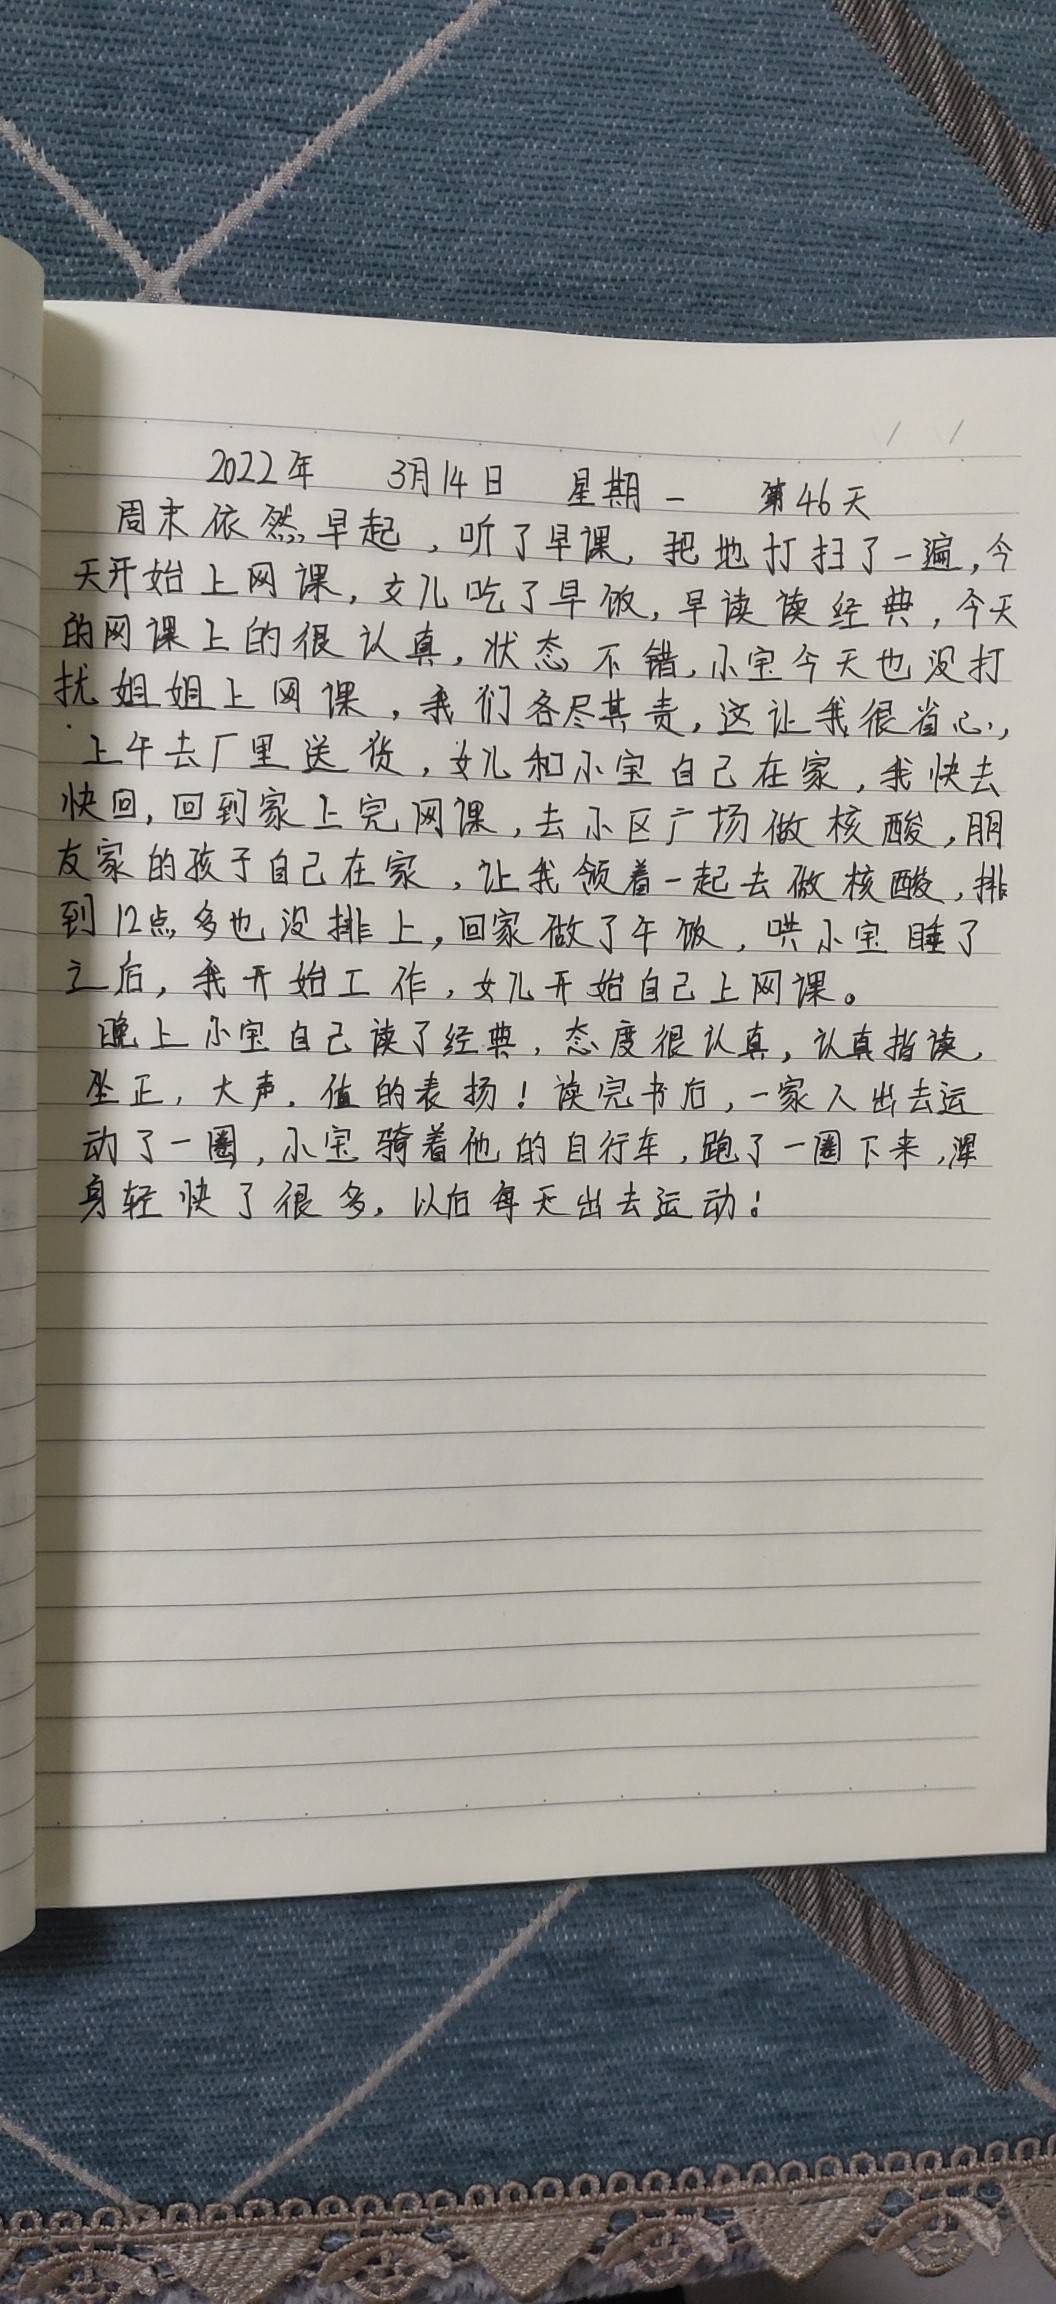 2022年 3月14日 星期一 第46天
周末依然早起，听了早课，把地打扫了一遍，今
天开始上网课，女儿吃了早饭，早读读经典，今天
的网课上的很认真，状态不错，小宝今天也没打
扰姐姐上网课，我们各尽其责，这让我很省心，
上午去厂里送货，女儿和小宝自己在家，我快去
快回，回到家上完网课，去小区广场做核酸，朋
友家的孩子自己在家，让我领着一起去做核酸，排
到12点多也没排上，回家做了午饭，哄小宝睡了
之后，我开始工作，女儿开始自己上网课。
晚上小宝自己读了经典，态度很认真，认真指读，
坐正，大声，值的表扬！读完书后，一家人出去运
动了一圈，小宝骑着他的自行车，跑了一圈下来，浑
身轻快了很多，以后每天出去运动！